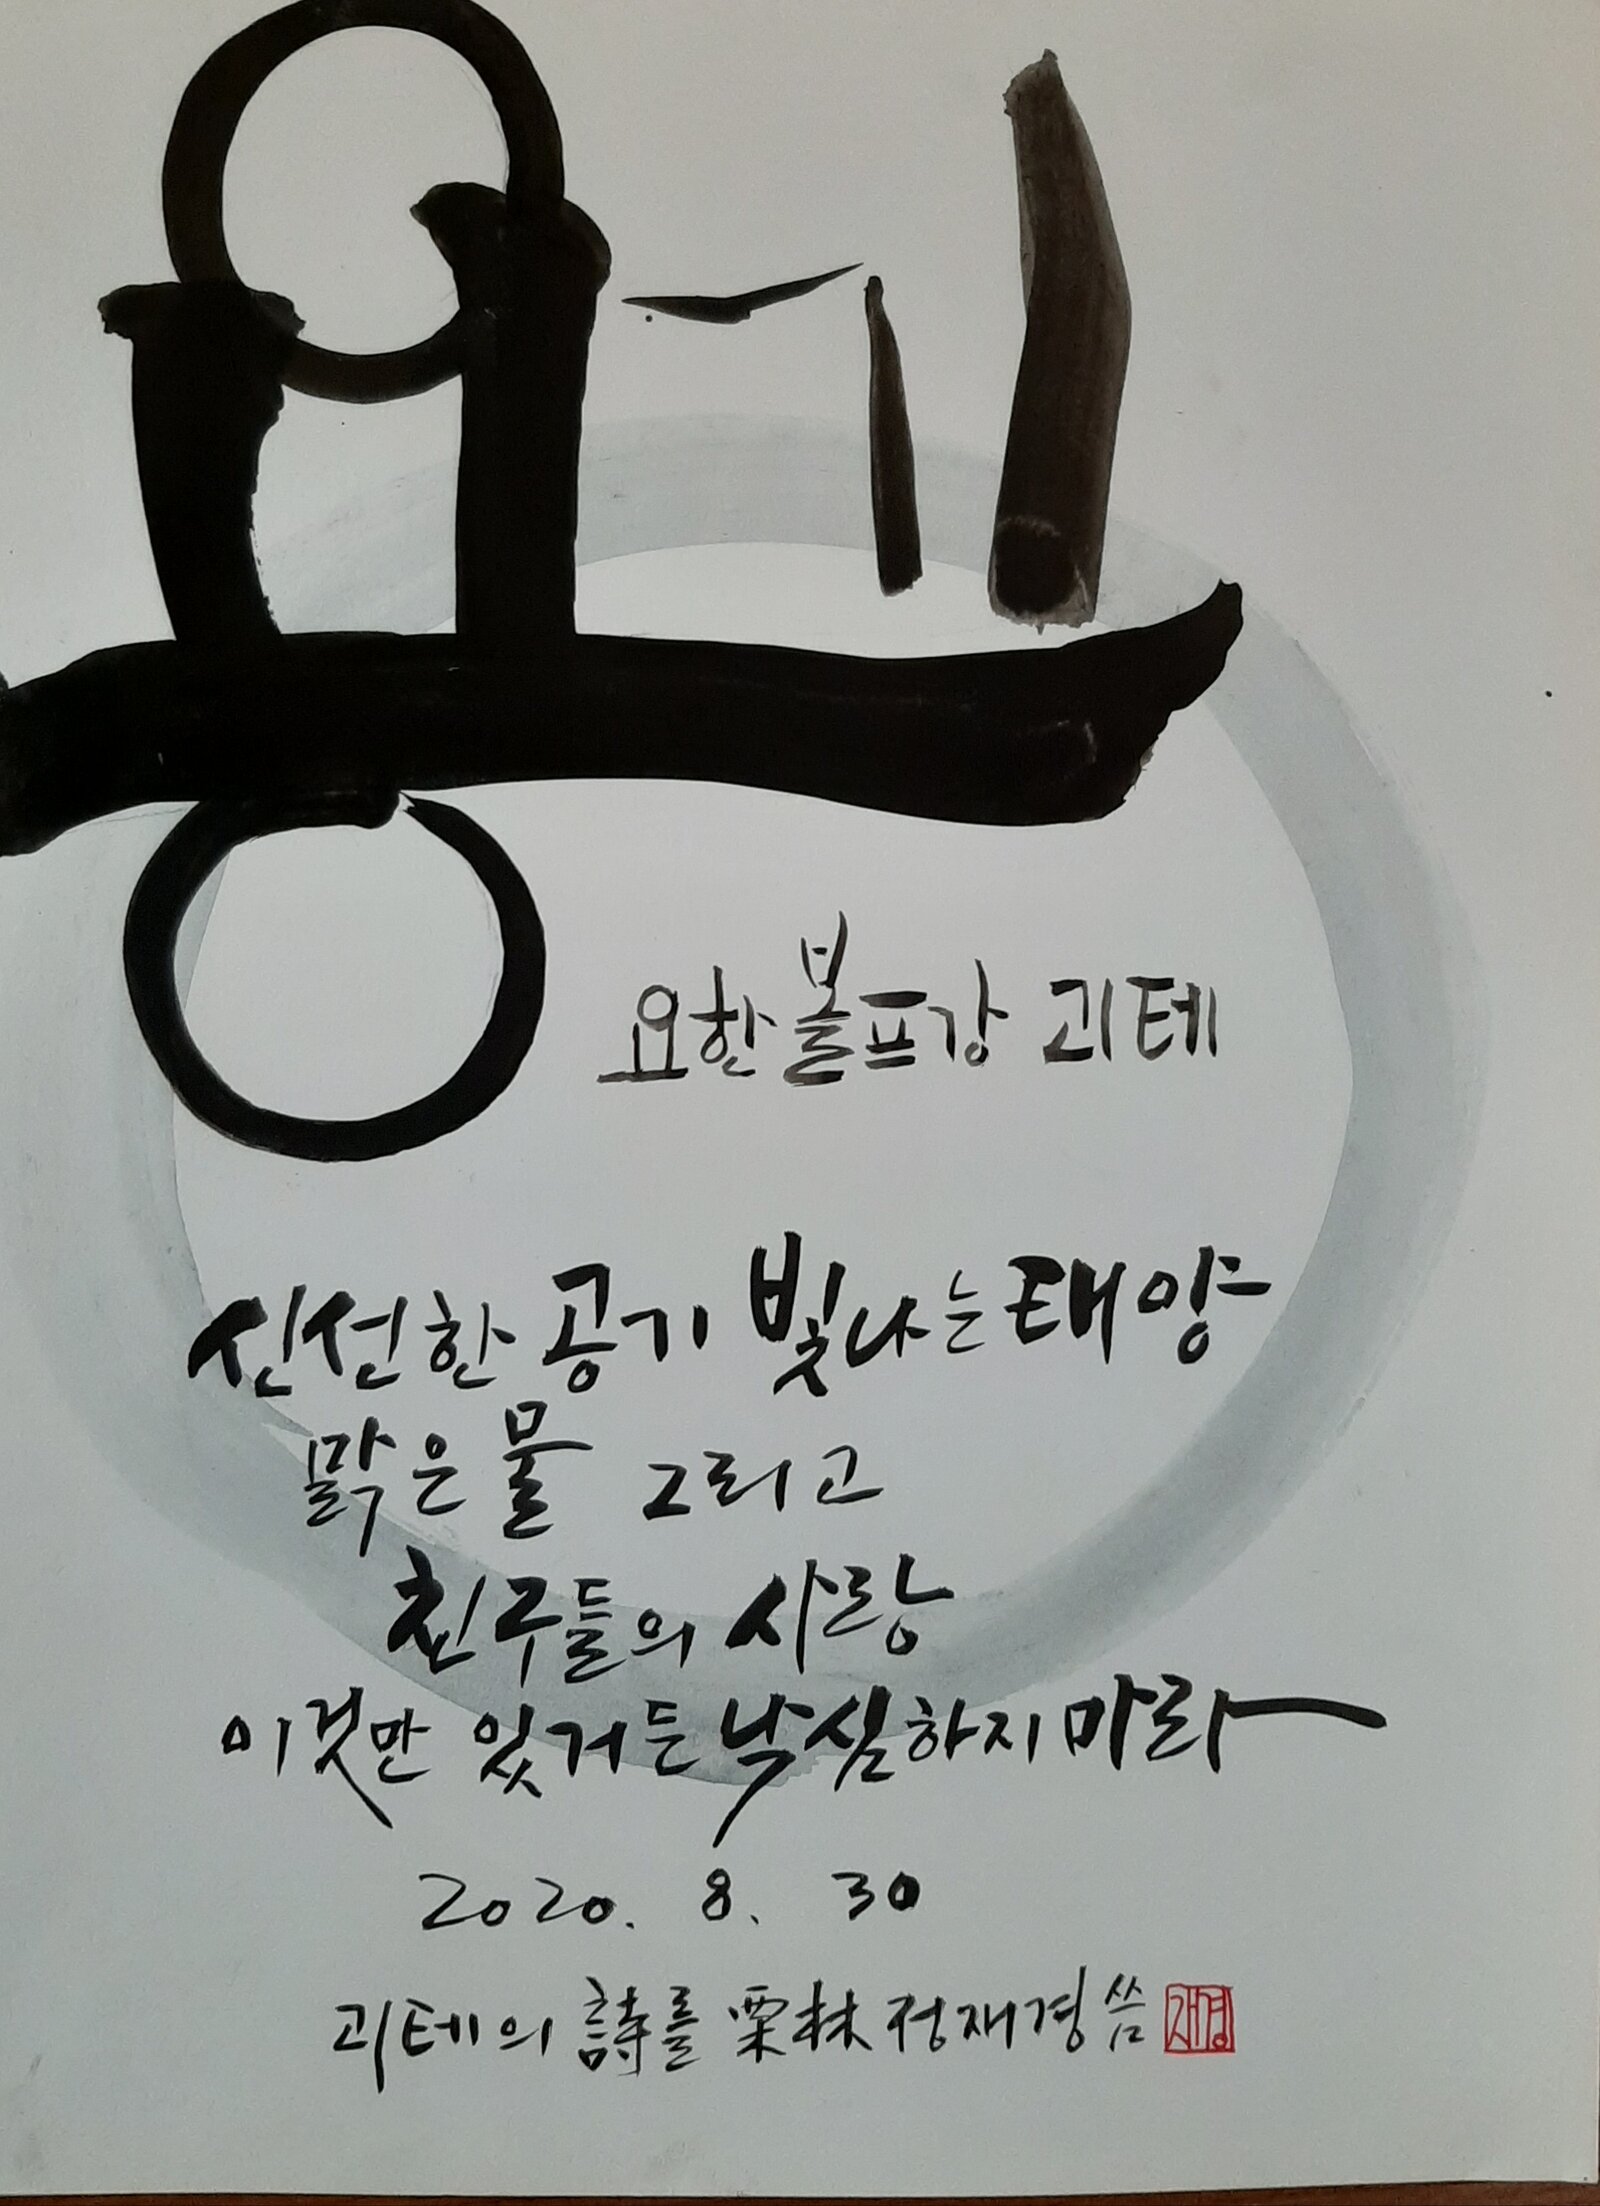 용기
요한 볼프강 괴테
신선한 공기 빛나는 태양
맑은 물 그리고
친구들의 사랑
이것만 있거든 낙심하지 마라
2020. 8. 30
괴테의 詩를 栗林 정재경 씀
재경